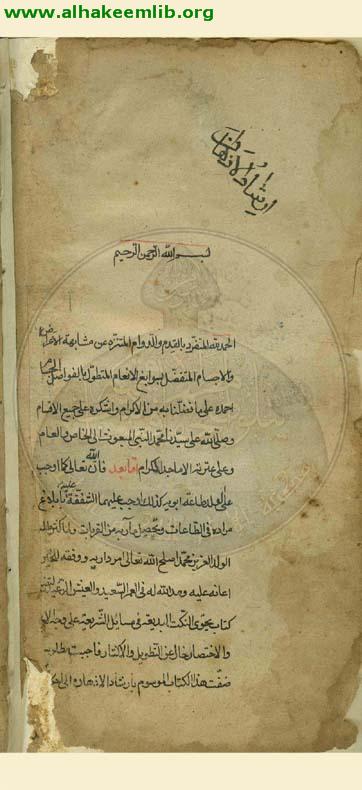 www.alhakeemlib.org
ارشاد الاذهان
بسم الله الرحمن الرحيم
الحمد لله المتفرد بالقدم والدوام المتنزه عن مشابهة الاعراض
والاجسام المتفضل بسوابغ الانعام المتطول بالفواضل الجسام
احمده على ما فضلنا به من الاكرام واشكره على جميع الاقسام
وصلى الله على سيدنا محمد النبي المبعوث الى الخاص والعام
وعلى عترته الاماجد الكرام اما بعد فان الله تعالى كما اوجب
على الولد طاعة ابويه كذلك اوجب عليهما الشفقة عليه بابلاغ
مراده في الطاعات وتحصيل مآربه من القربات ولما كثر طلب
الولد العزيز محمد اصلح الله تعالى امر داريه ووفقه للخير
اعانه عليه ومد الله له في العمر السعيد والعيش الرغيد
كتاب يحوي النكت البديعة في مسائل الشريعة على وجه
والاختصار خال عن التطويل والاكثار فاجبت مطلوبه
صنفت هذا الكتاب الموسوم بارشاد الاذهان الى